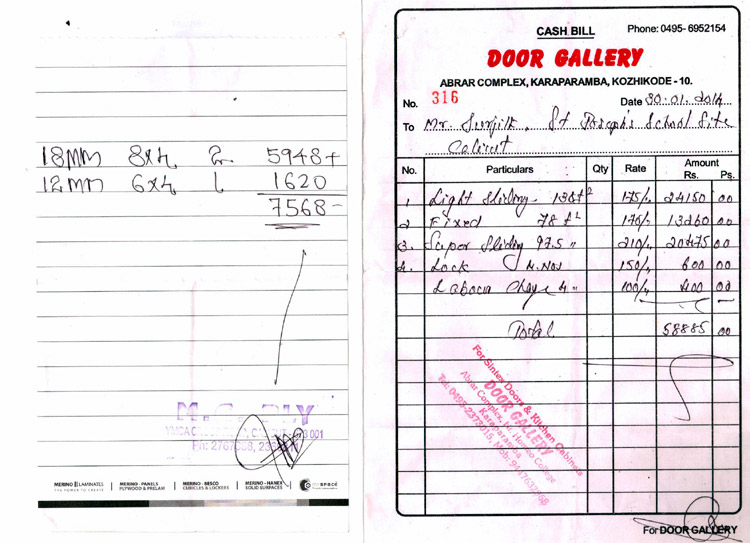 18MM 8x4 2 5948+
12MM 6x4 1 1620
7568-
MERINO LAMINATES
MERINO - PANELS
PLYWOOD & PRELAM
MERINO - BESCO
CUBICLES & LOCKERS
MERINO - HANEX
SOLID SURFACES
CASH BILL Phone: 0495- 6952154
DOOR GALLERY
ABRAR COMPLEX, KARAPARAMBA, KOZHIKODE - 10.
No. 316 Date 30.01.2014
To Mr. Surjith, St Joseph's School Site
Calicut
No. Particulars Qty Rate Amount
Rs. Ps.
1 Light Sliding 138 ft² 175/- 24150 00
2 Fixed 78 ft² 170/- 13260 00
3. Super Sliding 97.5 " 210/- 20475 00
4. Lock 4 Nos 150/- 600 00
Labour Charge 4 " 100/- 400 00
Total 58885 00
For Sintex Doors & Kitchen Cabinets
DOOR GALLERY
Abrar Complex, Nr. Homeo College
Karaparamba
Tel: 0495-2373015, Mob:
For DOOR GALLERY